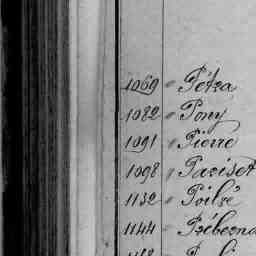 1069 " Pétra
1082 " Pony
1091 " Pierre
1098 " Pariset
1132 " Poilvé
1144 "